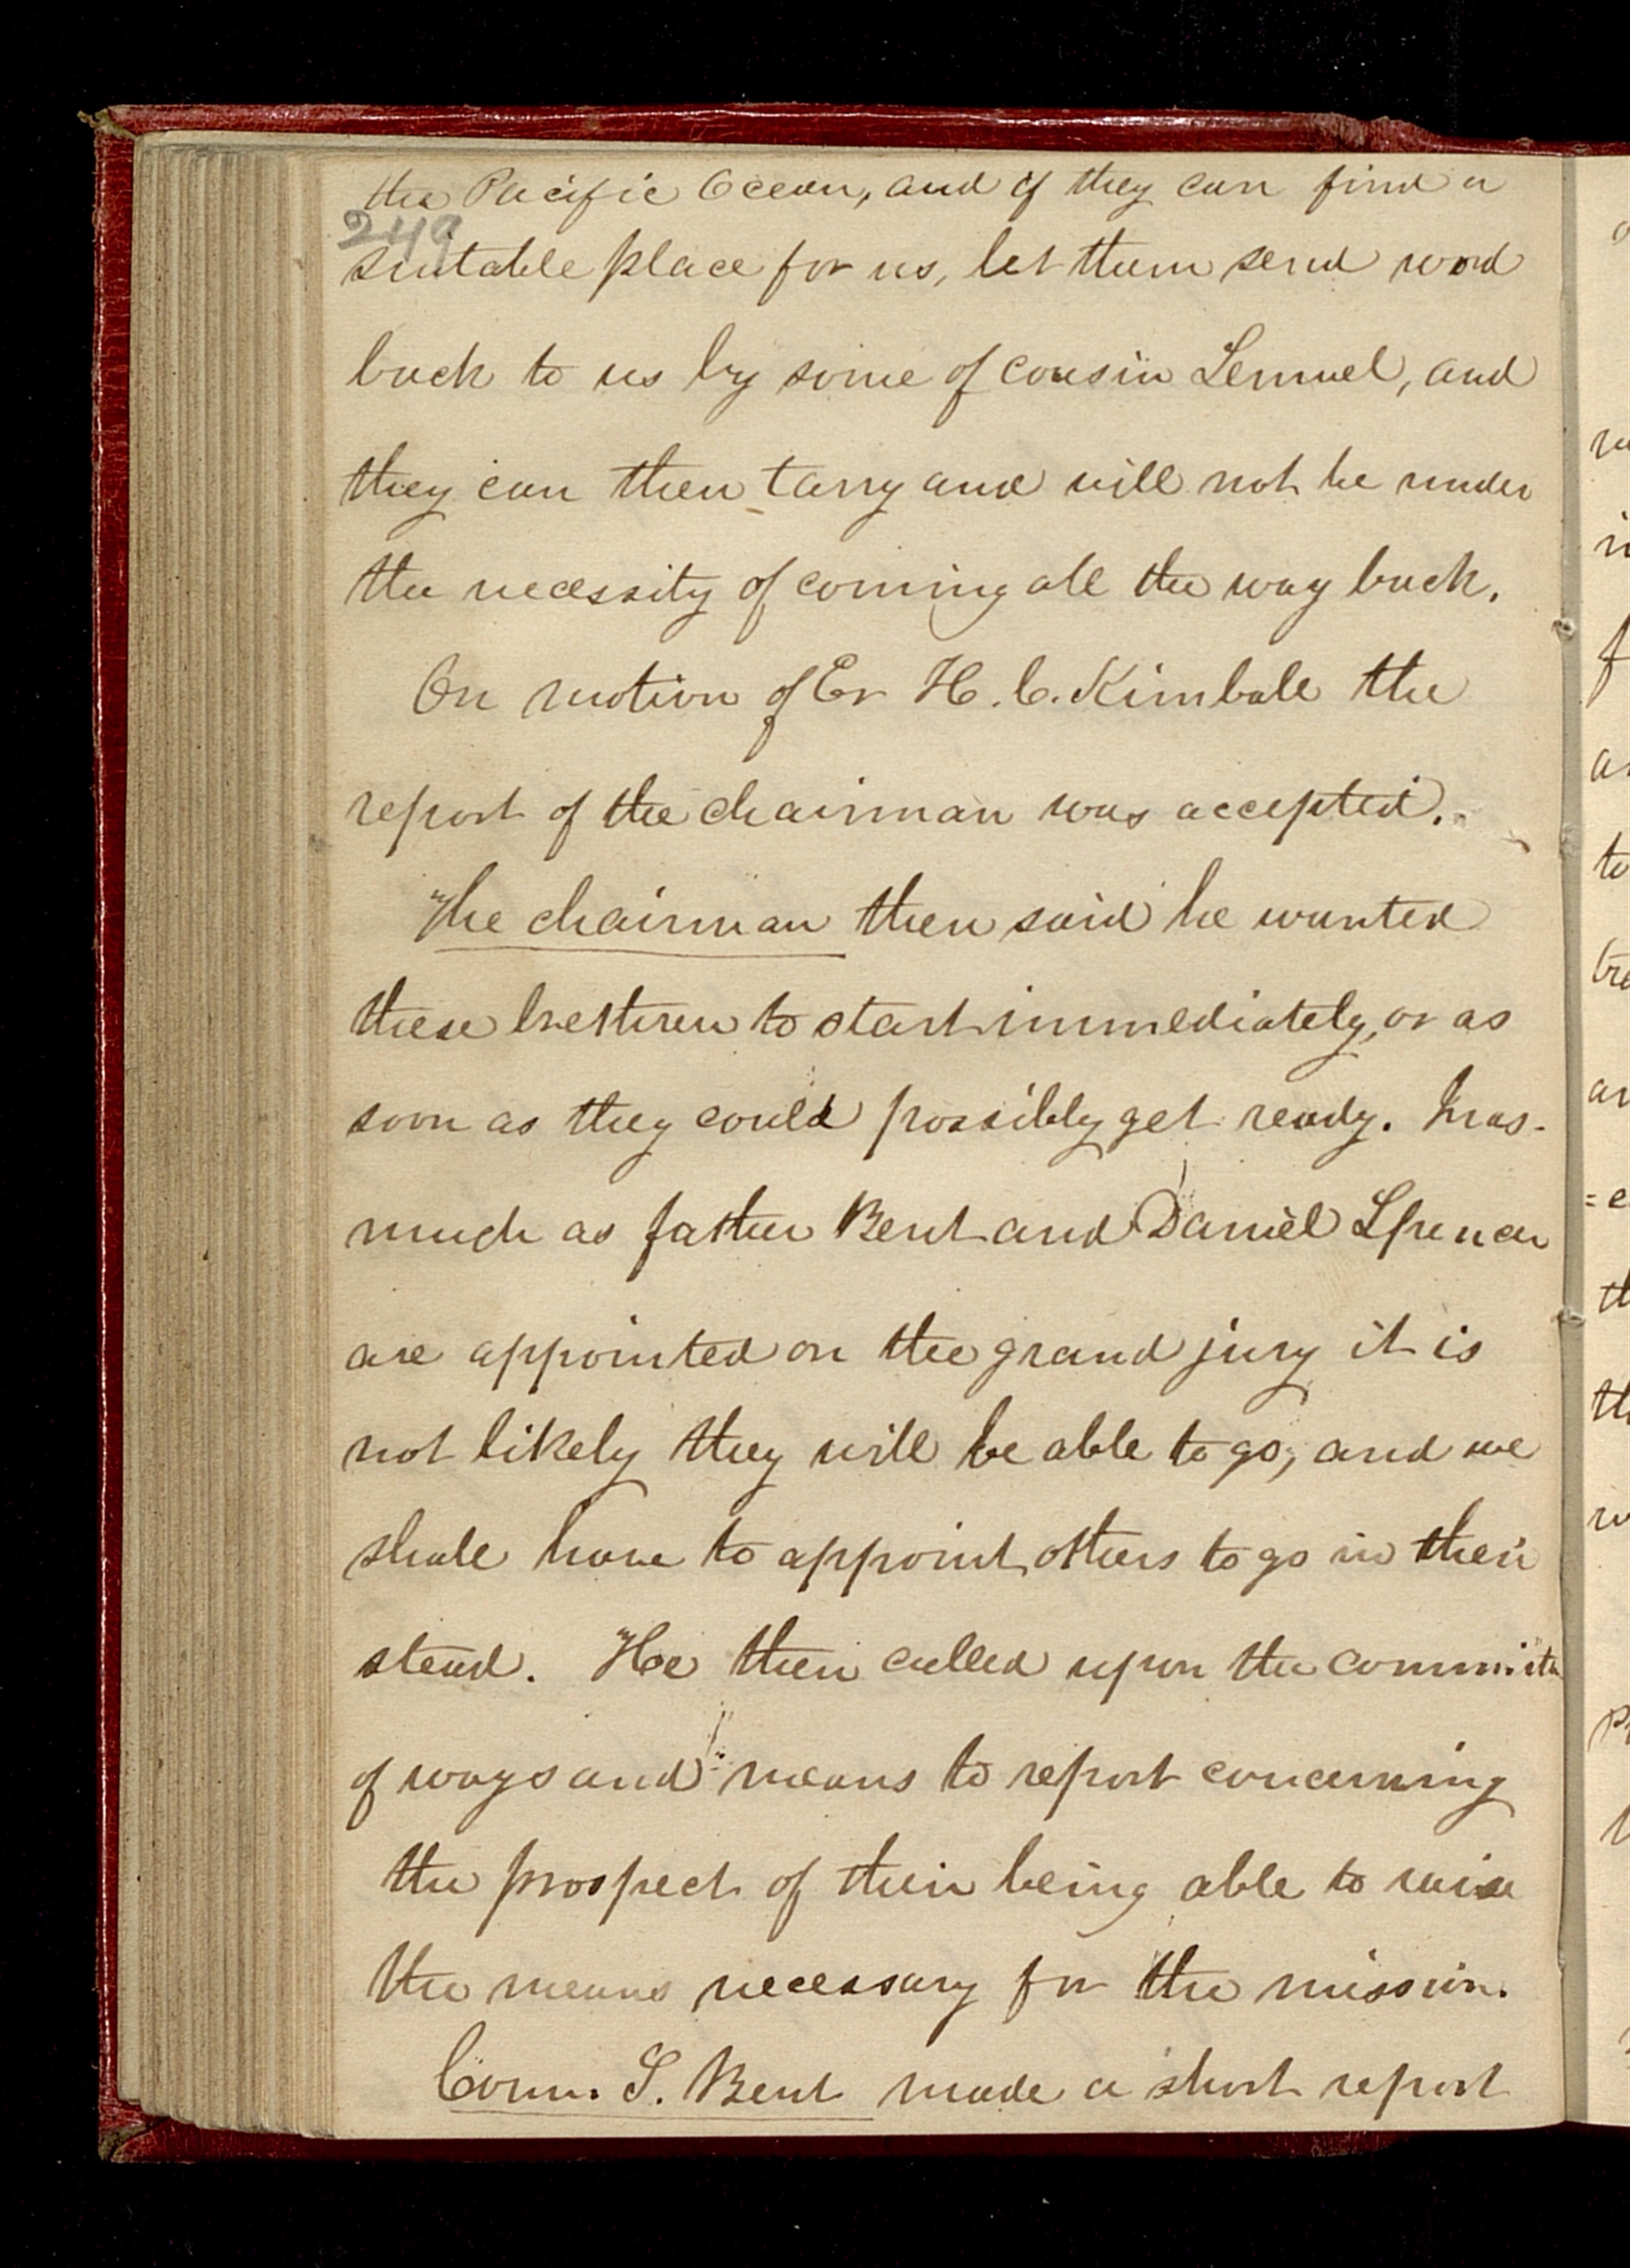 the Pacific Ocean, and if they can find a
249
suitable place for us, let them send word
back to us by some of cousin Lemuel, and
they can then tarry and will not be under
the necessity of coming all the way back.
On motion of Er H. C. Kimball the
report of the chairman was accepted.
The chairman then said he wanted
these brethren to start immediately, or as
soon as they could possibly get ready. Inas-
much as father Bent and Daniel Spencer
are appointed on the grand jury it is
not likely they will be able to go, and we
shall have to appoint others to go in their
stead. He then called upon the committee
of ways and means to report concerning
the prospect of their being able to raise
the means necessary for the mission.
Coun. S. Bent made a short report